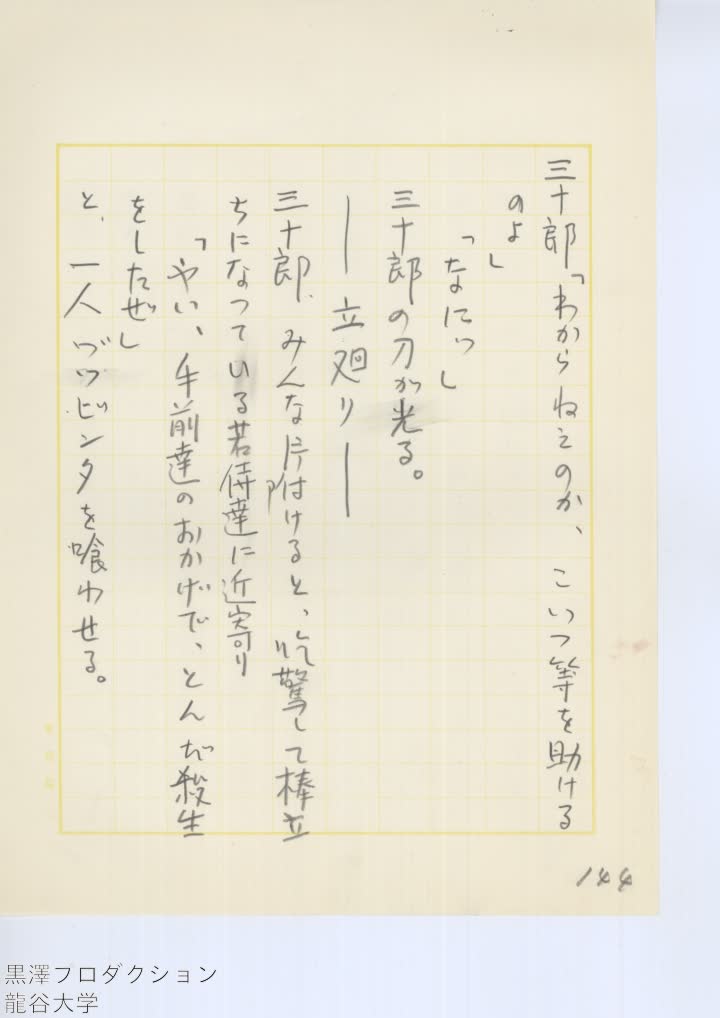 三十郎「わからねえのか、こいつ等を助ける
のよ」
「なにっ」
三十郎の刀が光る。
― 立廻り ―
三十郎、みんな片附けると、吃驚して棒立
ちになっている若侍達に近寄り
「やい、手前達のおかげで、とんだ殺生
をしたぜ」
と、一人づつビンタを喰わせる。
144
黒澤プロダクション
龍谷大学